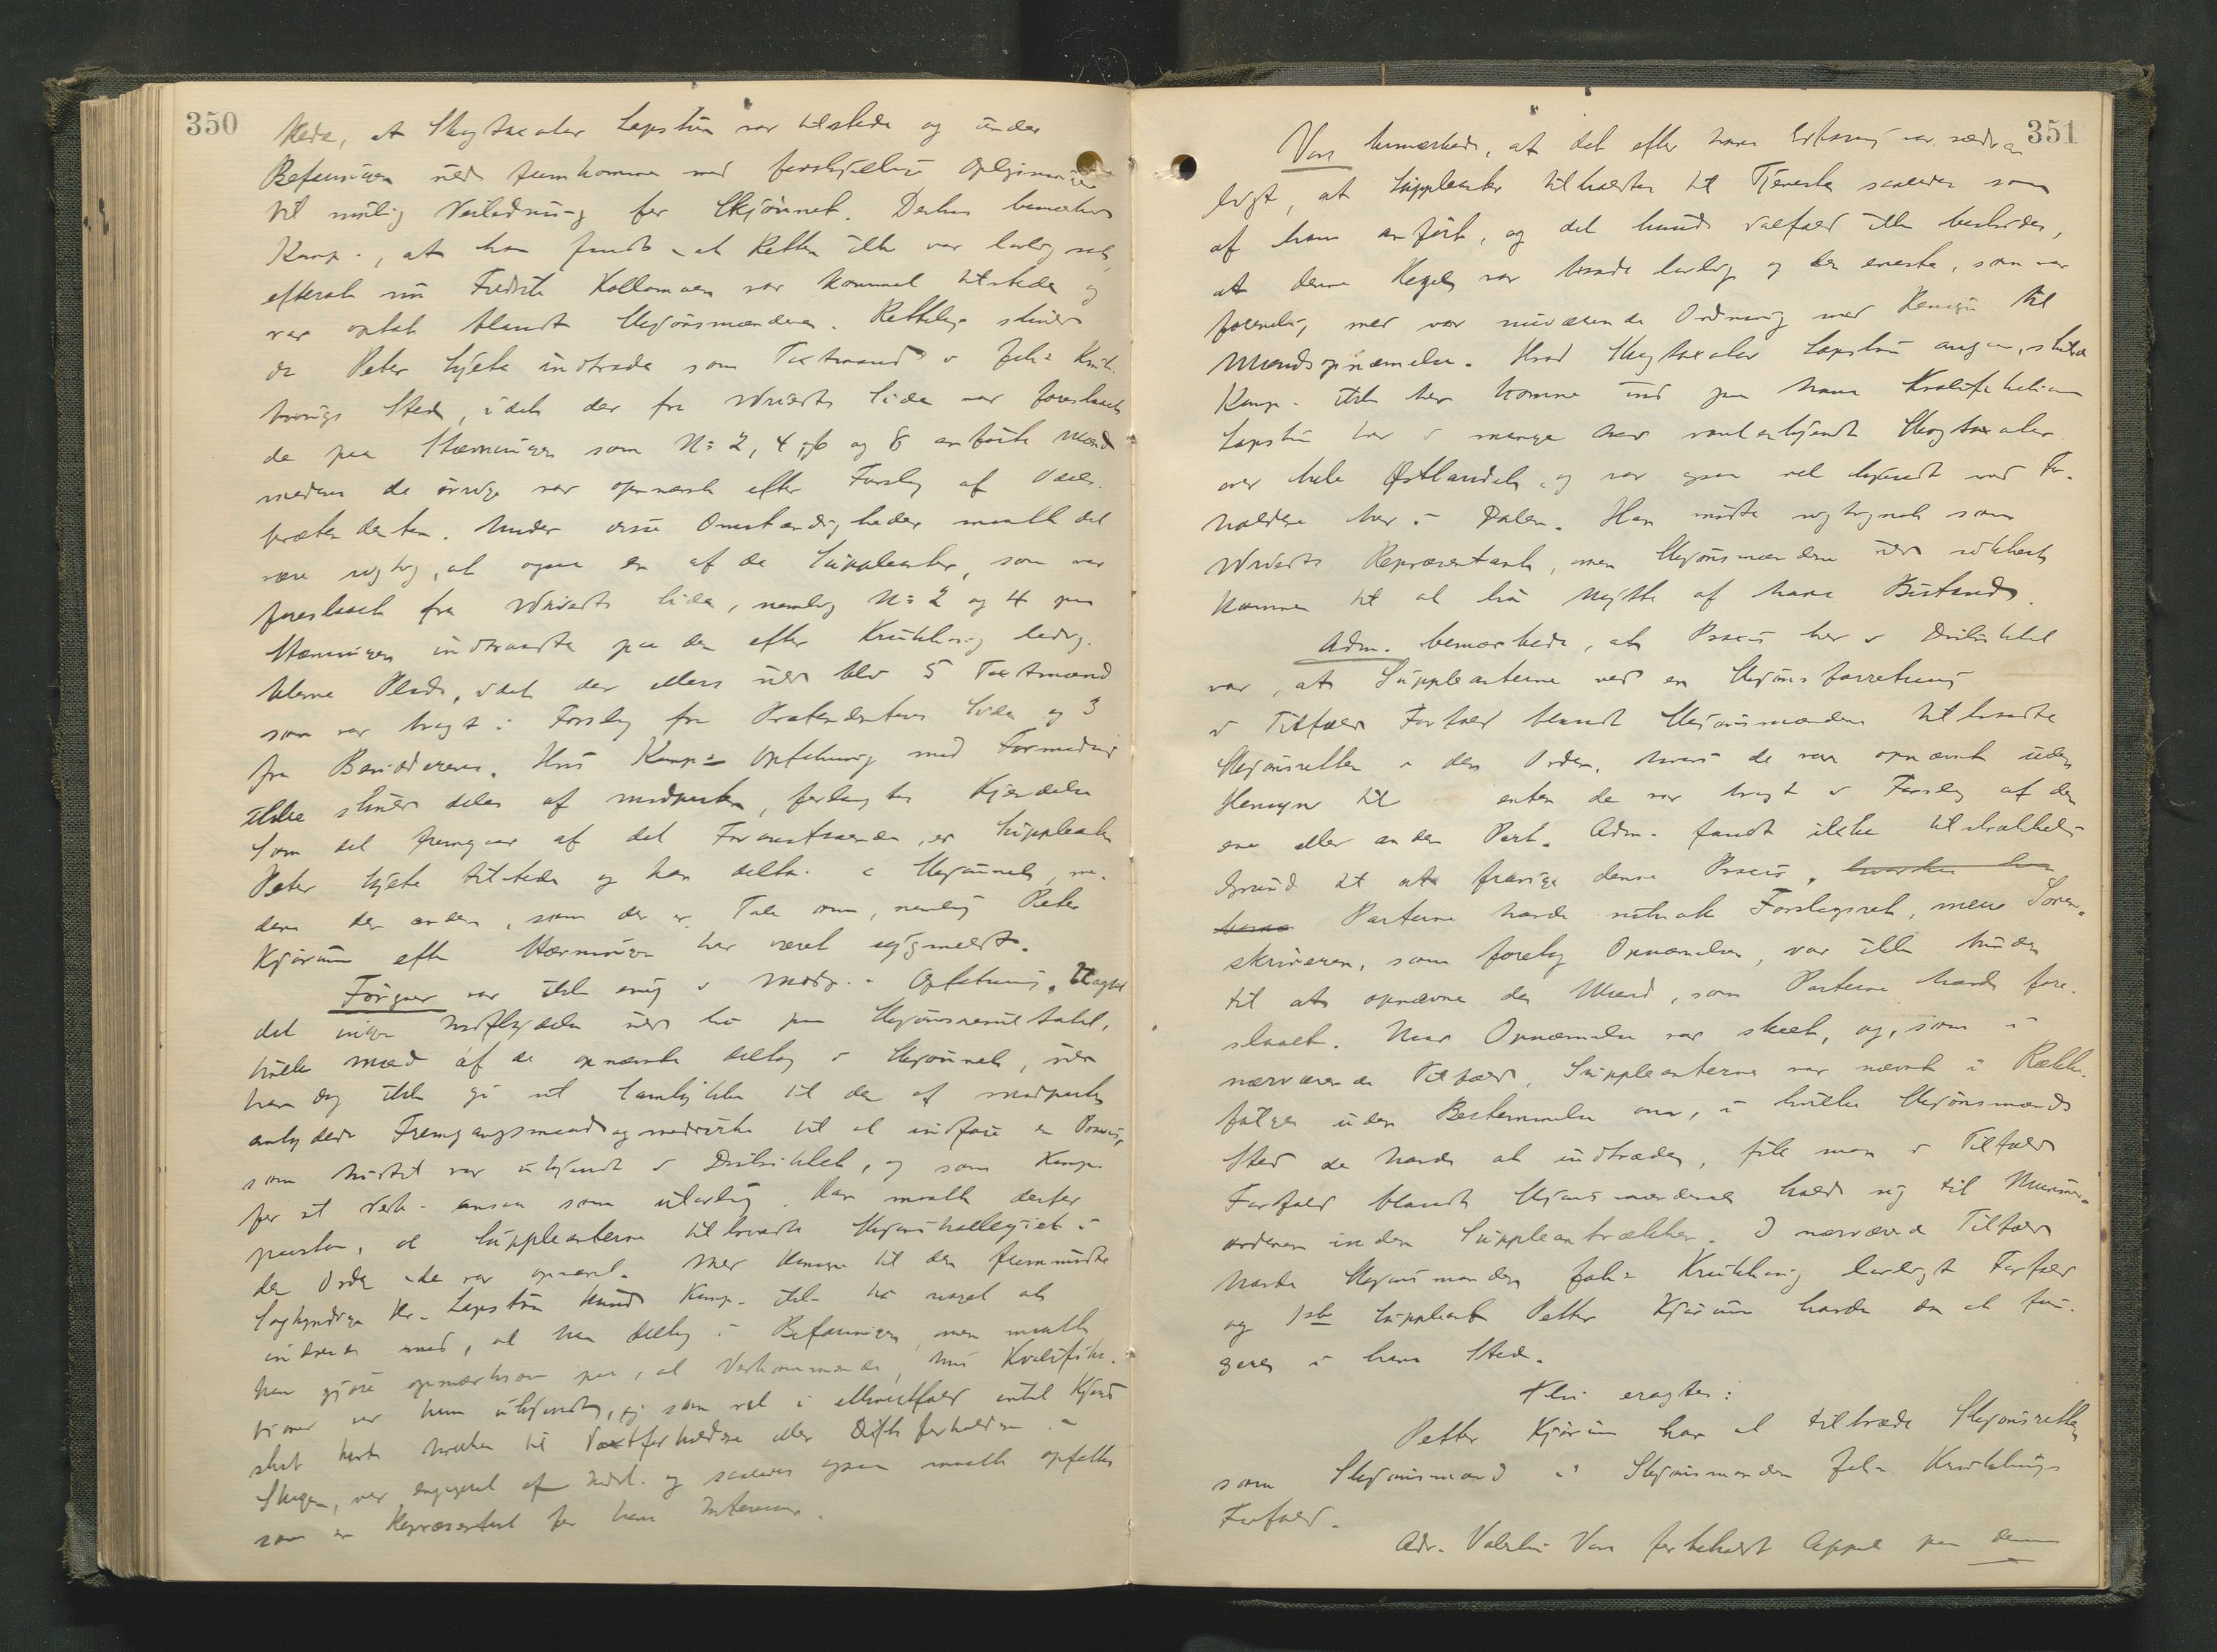 350
at Skogtaxator Lapstun var tilstede og under
Befaringen vilde fremkomme med forskjellige Oplysninger
til mulig Veiledning for Skjønnet. Derhos bemærket
Kamp., at han fandt at Retten ikke var lovlig sat,
efterat nu Fredrik Kollomoen var kommet tilstede og
var optat blandt Skjønsmændene. Rettelig skulde
da Peter Hjelte indtræde som Taxtmand i Joh:s Kruk-
haugs Sted, idet der fra Side var foreslaaet
de paa Stævningen som N: 2, 4, 6 og 8 anførte Mænd
medens de øvrige var opnævnt efter Forslag af
prætendenten. Under disse Omstændigheder maatte det
være rigtig, at ogsaa en af de Suppleanter, som var
foreslaaet fra Side, nemlig N: 2 og 4 paa
Stævningen indtraadte paa den efter Krukhaug ledig-
blevne Plads, idet der ellers vilde bli 5 Taxtmænd
som var bragt i Forslag fra Prætendentens Side og 3
fra . Hvis Kamp:s Opfatning med Formening
ikke skulde deles af modparten, forlangtes Kjendelse
Som det fremgaar af det Foranstaaende, er Suppleant
Peter Hjelte tilstede og kan delta i Skjønnet, me-
dens den anden, som der er Tale om, nemlig Peter
Kjørum efter Stævningen har været sygmeldt.
var ikke enig i Modp.s Opfatning. Uagtet
det ingen Indflydelse vilde ha paa Skjønsresultatet,
hvilke Mænd af de opnævnte deltog i Skjønnet, vilde
han dog ikke gi sit Samtykke til den af modparten
antydede Fremgangsmaade og medvirke til at indføre en Praxis,
som hittil var ukjendt i Distriktet, og som Kamp.
for sit Vedk. ansaa som ulovlig. Han maatte derfor
paastaa, at Suppleanterne tiltraadte Skjønskollegiet i
den Orden de var opnævnt. Med Hensyn til den fremmødte
Sagkyndige Hr. Lapstun kunde Kamp. ikke ha noget at
indvende imod, at han deltog i Befaringen, men maatte
han gjøre opmærksom paa, at Vedkommende, hvis Kvalifika-
tioner var ham ukjendt, og som vel i ethvertfald intet Kjend-
skab havde hverken til Vextforholdene eller Driftsforholdene i
Skogen, var engageret af og saaledes ogsaa maatte opfattes
som en Repræsentant for hans Interesser.
351
Vore bemærkede, at det efter hans Erfaring var sædvan-
ligt, at Suppleanter tilkaldtes til Tjeneste saaledes som
af ham anført, og det kunde ialfald ikke bestrides,
at denne Regel var baade lovlig og den eneste, som var
forenelig med vor nuværende Ordning med Hensyn til
Mandsopnævnelse. Hvad Skogtaxator Lapstun angaar, skulde
Kamp. ikke her komme ind paa hans Kvalifikationer
Lapstun har i mange Aar været anvendt Skogtaxator
over hele Østlandet, og var ogsaa vel kjendt med For-
holdene her i Dalen. Han mødte rigtignok som
Repræsentant, men Skjønsmændene vilde sikkert
komme til at ha Nytte af hans Bistand.
Adm. bemærkede, at Praxis her i Distriktet
var, at Suppleanterne ved en Skjønsforretning
i Tilfælde Forfald blandt Skjønsmændene tiltraadte
Skjønsretten i den Orden, hvori de var opnævnt uden
Hensyn til enten de var bragt i Forslag af den
ene eller anden Part. Adm. fandt ikke tilstrækkelig
Grund til at fravige denne Praxis.
Parterne havde Forslagsret, men Soren-
skriveren, som foretog Opnævnelsen, var ikke bunden
til at opnævne de Mænd, som Parterne havde fore-
slaaet. Naar Opnævnelse var skeet, og, som i
nærværende Tilfælde, Suppleanterne var nævnt i Række-
følge uden Bestemmelse om, i hvilken Skjønsmands
Sted de havde at indtræde, fik man i Tilfælde
Forfald blandt Skjønsmændene holde sig til Nummer-
ordenen inden Suppleantrækken. I nærværende Tilfælde
havde Skjønsmanden Joh:s Krukhaug lovligt Forfald
og 1ste Suppleant Petter Kjørum havde da at fun-
gere i hans Sted.
Thi eragtes:
Petter Kjørum har at tiltræde Skjønsretten
som Skjønsmand i Skjønsmanden Joh:s Krukhaugs
Forfald.
Adv. Vore forbeholdt Appel paa denne